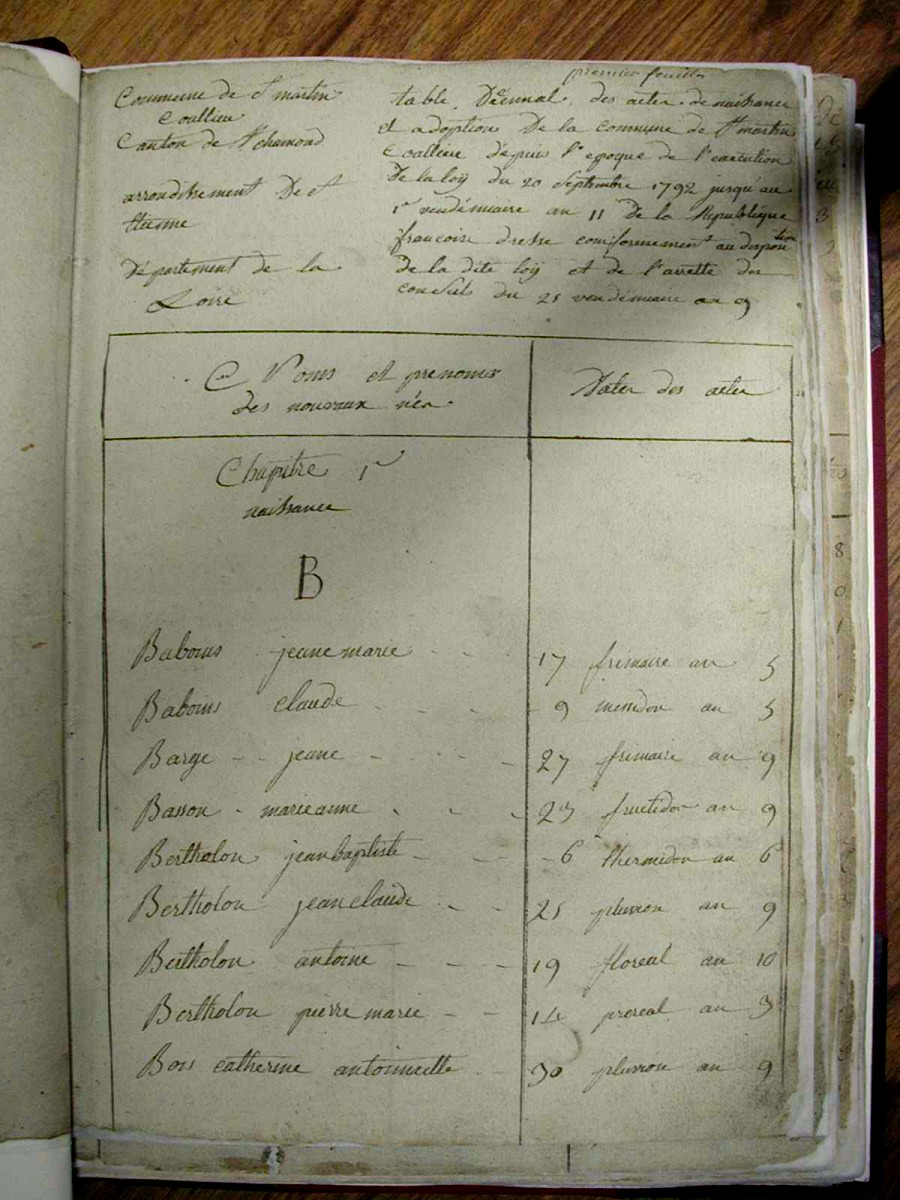 premier feuillet
Commune de St martin
Coallieu
Canton de St chamond
arrondissement De St
etienne
Département de la
Loire
table Décennal des actes de naissance
et adoption De la Commune de St martin
Coallieu dépuis l'epoque de l'execution
De la loÿ du 20 Septembre 1792 jusqu'au
1er vendémiaire an 11 De la Republique
francoise dresse conformement au disposition
De la dite loÿ et de l'arrette des
consuls du 25 vendémiaire an 9
Noms et prenoms
des nouvaux nés
Dates des actes
Chapitre 1er
naissance
B
Baboins jeane marie 17 frimaire an 5
Baboins claude 9 messidor an 5
Barge jeane 27 frimaire an 9
Basson marieanne 23 fructidor an 9
Bertholon jeanbaptiste 6 thermidor an 6
Bertholon jeanclaude 25 pluvios an 9
Bertholon antoine 19 floreal an 10
Bertholon pierre marie 14 prereal an 3
Bois catherine antoinnette 30 pluvios an 9